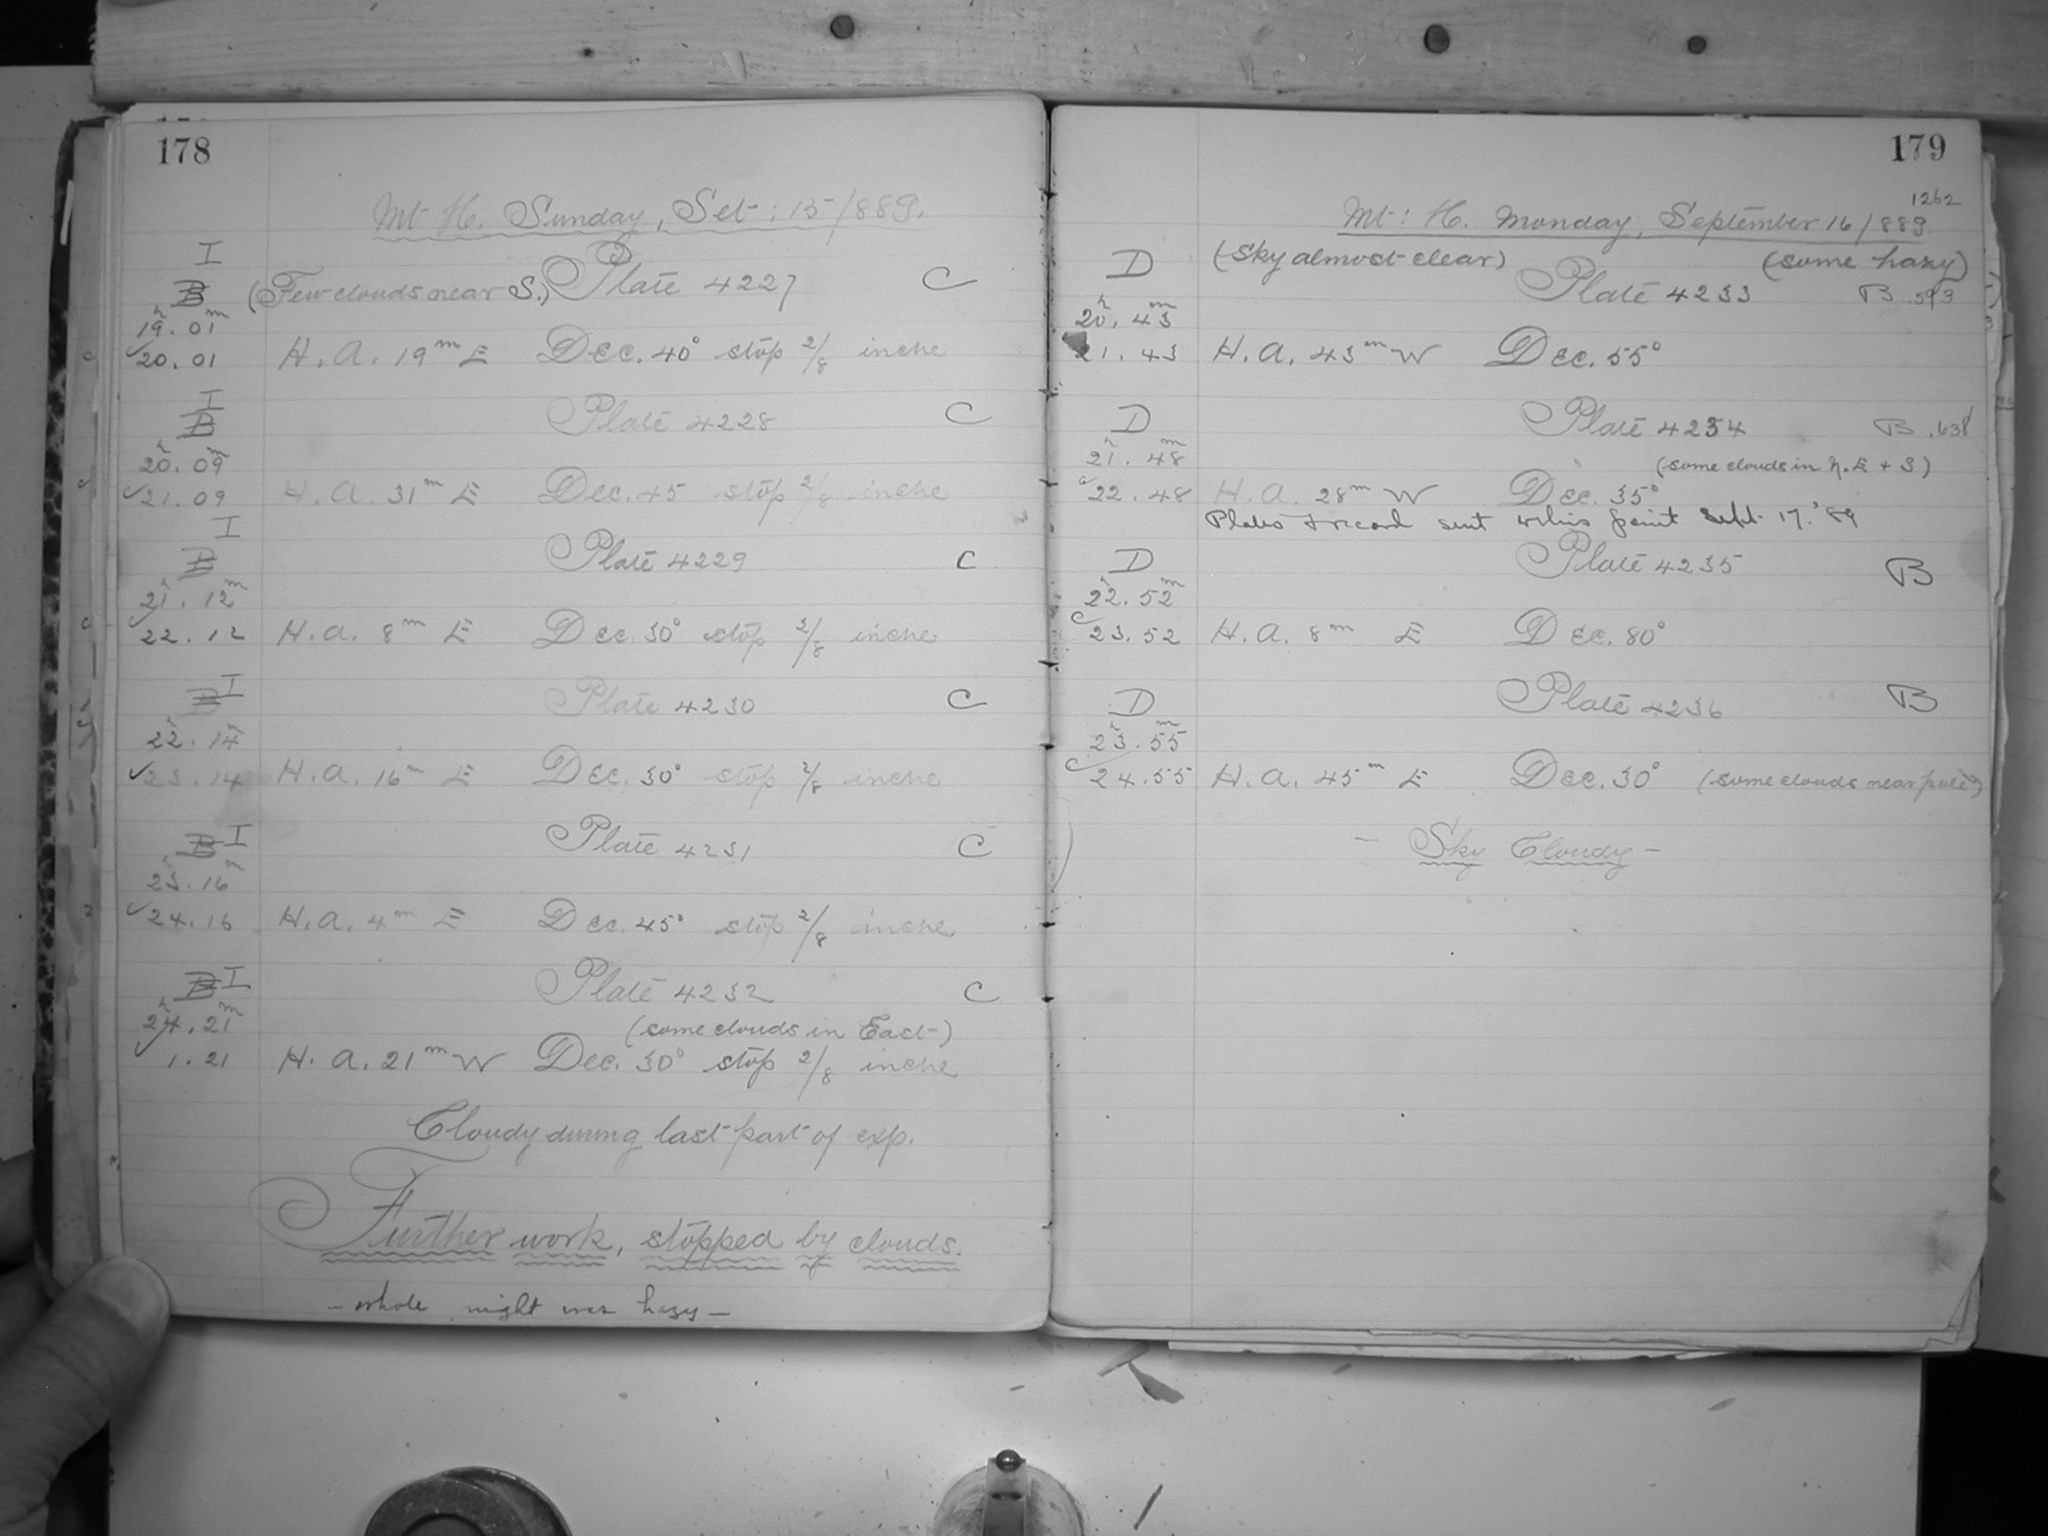 178
Mt H. Sunday, Set: 15/889.
I
B (Few clouds near S.) Plate 4227 C
19h. 01m
20. 01 H. A. 19m E Dec. 40° stop 2/8 inche
I
B Plate 4228 C
20h. 09m
21. 09 H. A. 31m E Dec. 45 stop 2/8 inche
I
B Plate 4229 C
21h. 12m
22. 12 H. A. 8m E Dec. 30° stop 2/8 inche
B I Plate 4230 C
22h. 14m
23. 14 H. A. 16m E Dec. 30° stop 2/8 inche
B I Plate 4231 C
23h. 16m
24. 16 H. A. 4m E Dec. 45° stop 2/8 inche
B I Plate 4232 C
24h. 21m (some clouds in East)
1. 21 H. A. 21m W Dec. 30° stop 2/8 inche
Cloudy during last part of exp.
Further work, stopped by clouds.
— whole night was hazy —
179
1262
Mt: H. Monday, September 16/889
D (Sky almost clear) (some hazy)
Plate 4233 B 593
20h. 43m
21. 43 H. A. 43m W Dec. 55°
D Plate 4234 B .638
21h. 48m (some clouds in N. E + S)
22. 48 H. A. 28m W Dec. 35°
Plates & record sent to this point Sept. 17. '89
D Plate 4235 B
22h. 52m
23. 52 H. A. 8m E Dec. 80°
D Plate 4236 B
23h. 55m
24. 55 H. A. 45m E Dec. 30° (some clouds near pole)
— Sky Cloudy —